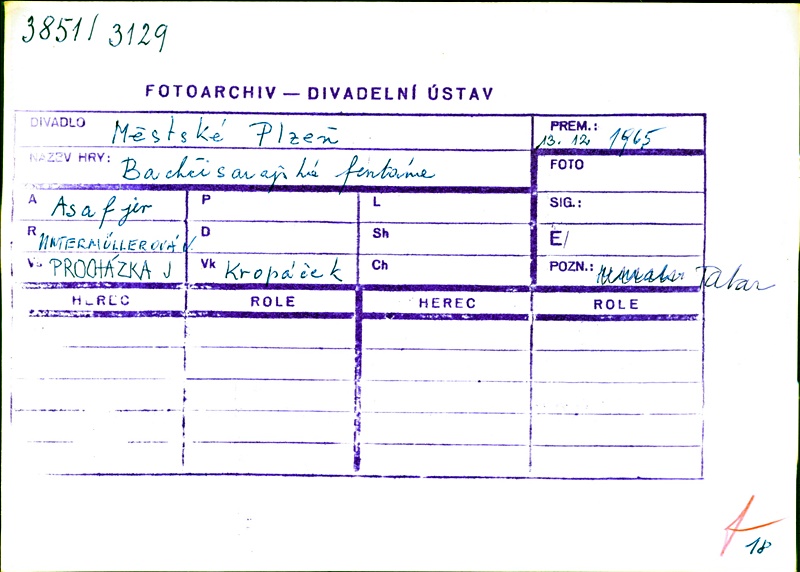 3851/3129
FOTOARCHIV — DIVADELNÍ ÚSTAV
DIVADLO Městské Plzeň
PREM.: 13. 12 1965
NÁZEV HRY: Bachčisarajská fontána
FOTO
A Asafjev
P
L
SIG.:
R UNTERMÜLLEROVÁ V.
D
Sh
Ě/
Vs PROCHÁZKA J
Vk Kropáček
Ch
POZN.: Tatar
HEREC ROLE HEREC ROLE
18